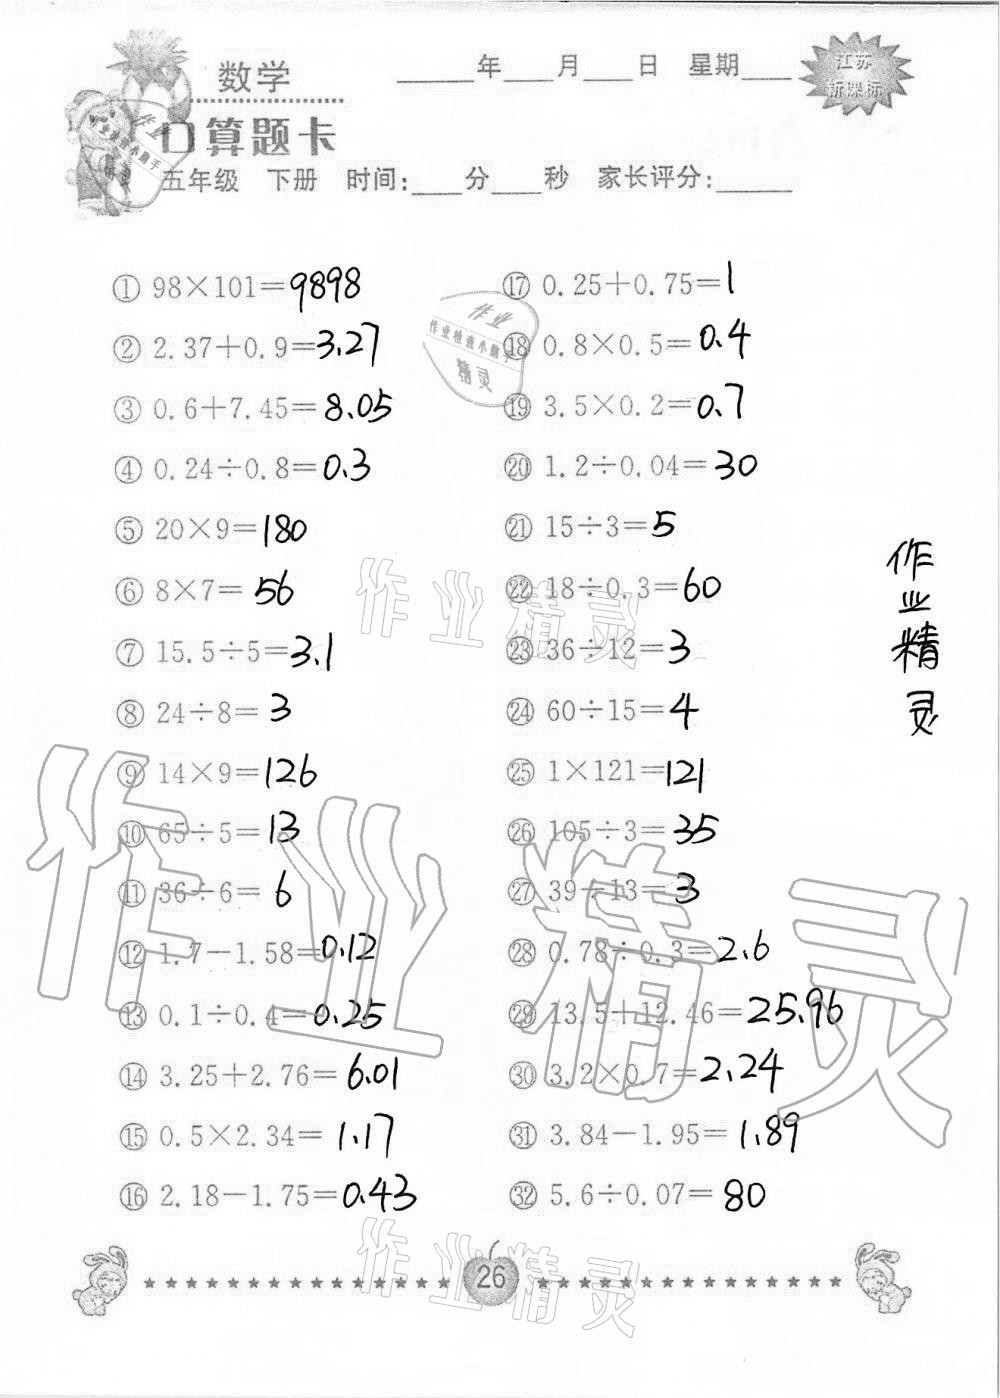 数学
____年____月____日 星期____
江苏
新课标
口算题卡
五年级 下册 时间:____分____秒 家长评分:______
① 98×101=9898
② 2.37+0.9=3.27
③ 0.6+7.45=8.05
④ 0.24÷0.8=0.3
⑤ 20×9=180
⑥ 8×7=56
⑦ 15.5÷5=3.1
⑧ 24÷8=3
⑨ 14×9=126
⑩ 65÷5=13
⑪ 36÷6=6
⑫ 1.7-1.58=0.12
⑬ 0.1÷0.4=0.25
⑭ 3.25+2.76=6.01
⑮ 0.5×2.34=1.17
⑯ 2.18-1.75=0.43
⑰ 0.25+0.75=1
⑱ 0.8×0.5=0.4
⑲ 3.5×0.2=0.7
⑳ 1.2÷0.04=30
㉑ 15÷3=5
㉒ 18÷0.3=60
㉓ 36÷12=3
㉔ 60÷15=4
㉕ 1×121=121
㉖ 105÷3=35
㉗ 39÷13=3
㉘ 0.78÷0.3=2.6
㉙ 13.5+12.46=25.96
㉚ 3.2×0.7=2.24
㉛ 3.84-1.95=1.89
㉜ 5.6÷0.07=80
作业精灵
作业
作业检查小助手
精灵
作业
作业检查小助手
精灵
作业精灵
作业精灵
作业精灵
26